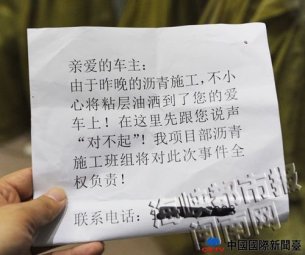 亲爱的车主:
由于昨晚的沥青施工,不小
心将粘层油洒到了您的爱
车上!在这里先跟您说声
“对不起”!我项目部沥青
施工班组将对此次事件全
权负责!
联系电话:
海峡都市报
闽南网
中國國際新聞臺